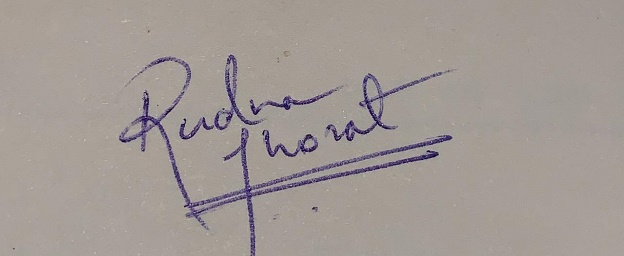 Rudra
Thorat